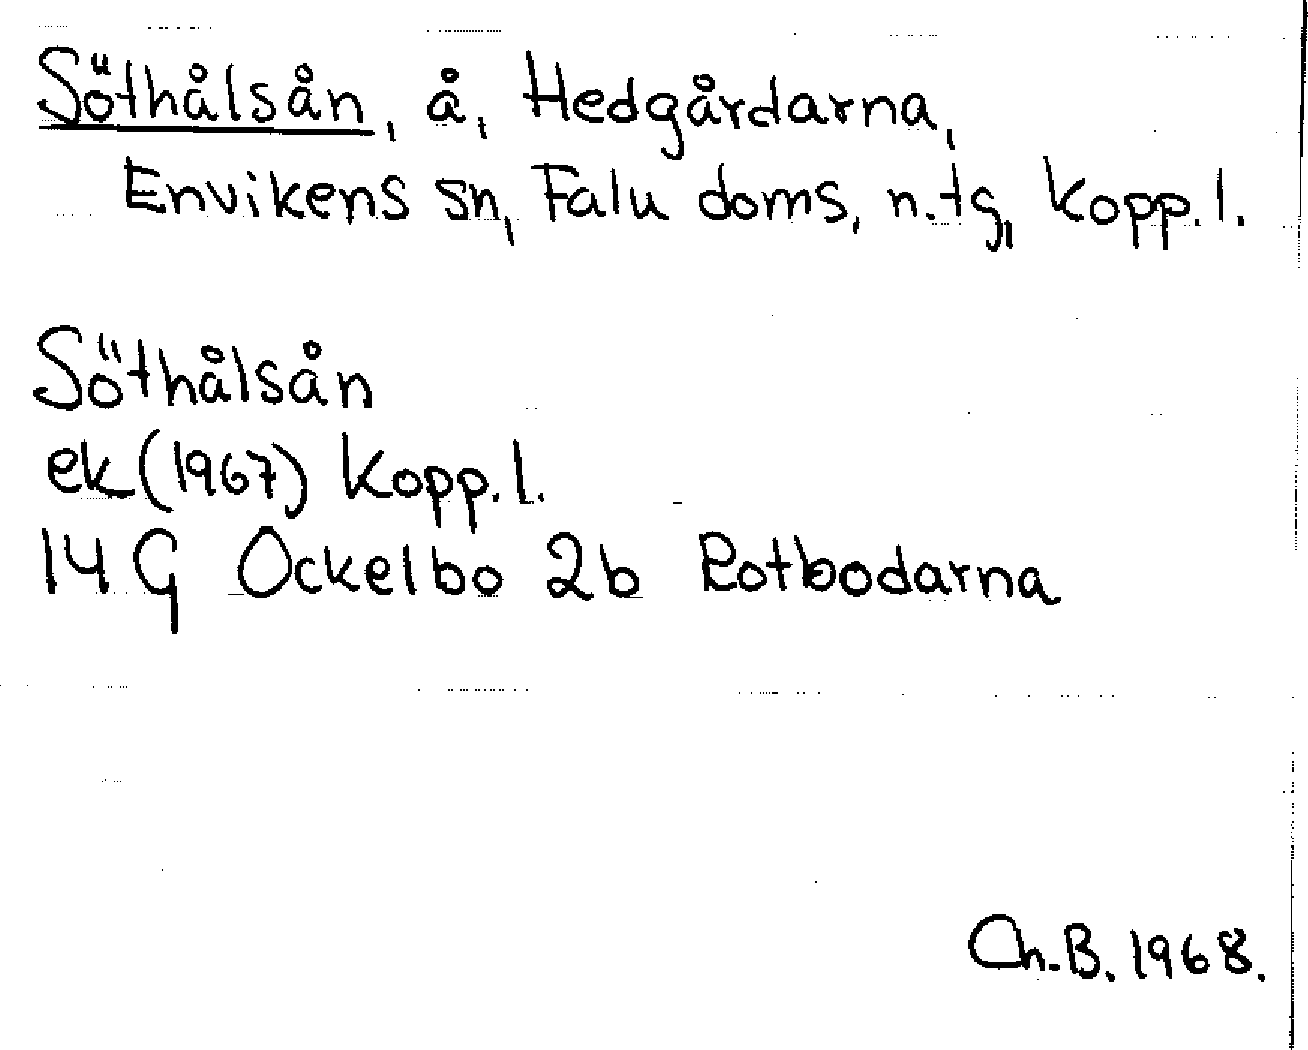 Söthålsån, å, Hedgårdarna,
Envikens sn, Falu doms, n.tg, Kopp.l.
Söthålsån
ek (1967) Kopp.l.
14 G Ockelbo 2b Rotbodarna
Ch.B. 1968.